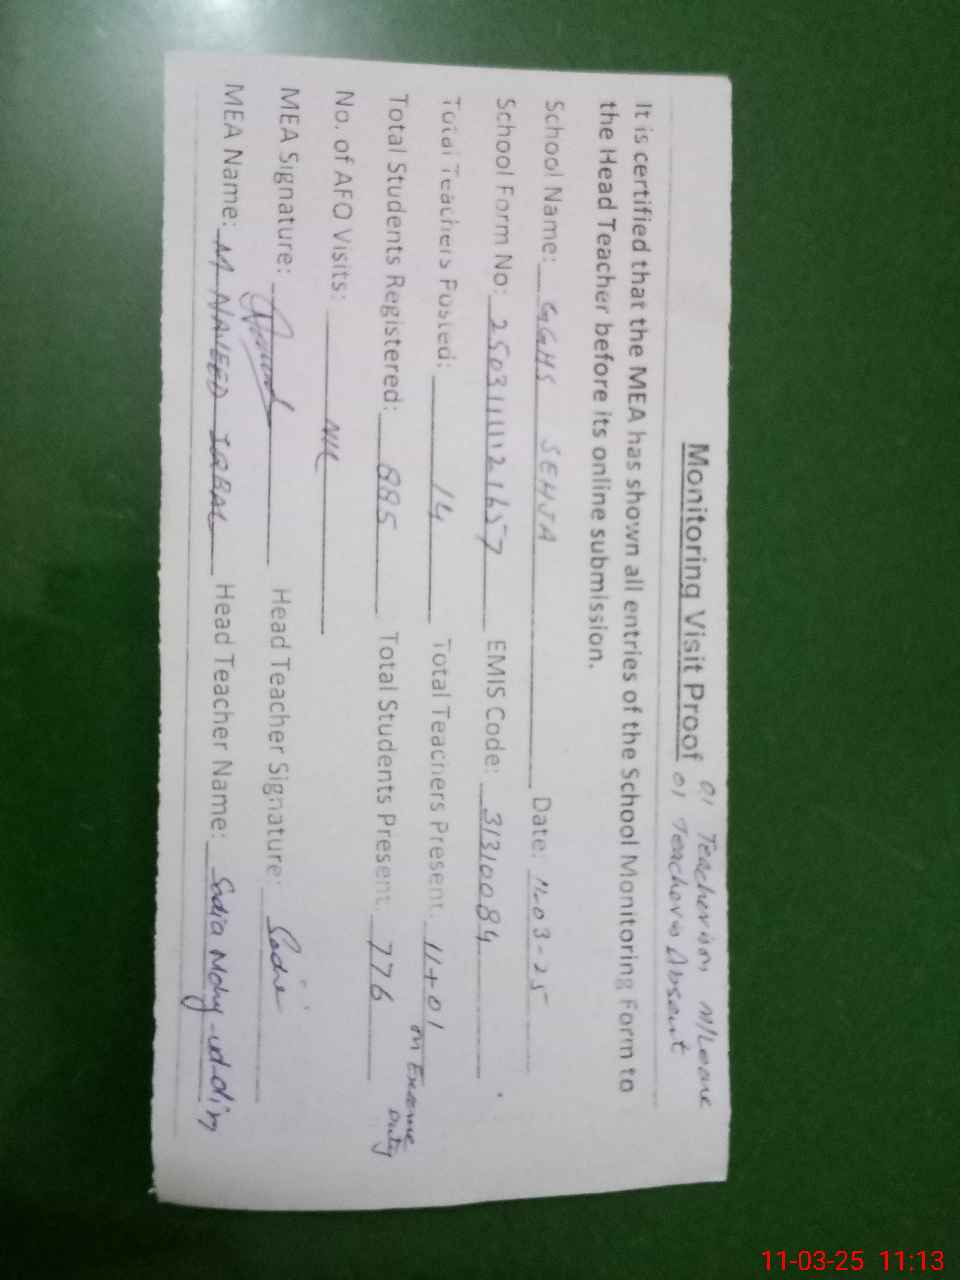 01 Teacher is on M/Leave
Monitoring Visit Proof 01 Teacher is Absent
It is certified that the MEA has shown all entries of the School Monitoring Form to
the Head Teacher before its online submission.
School Name: GGHS SEHJA Date: 11-03-25
School Form No: 2503111121657 EMIS Code: 31310084
Total Teachers Posted: 14 Total Teachers Present: 11+01 on Exame Duty
Total Students Registered: 885 Total Students Present: 776
No. of AFO Visits: NIL
MEA Signature: Head Teacher Signature: Sadia
MEA Name: M NAVEED IQBAL Head Teacher Name: Sadia Mohy-ud-din
11-03-25 11:13